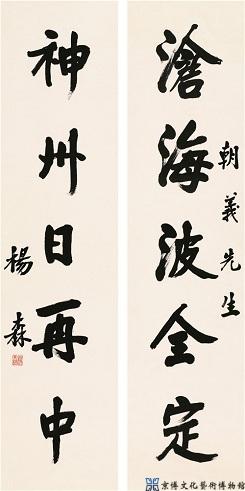 朝義先生
滄海波全定
神州日再中
楊森
京博文化藝術博物館